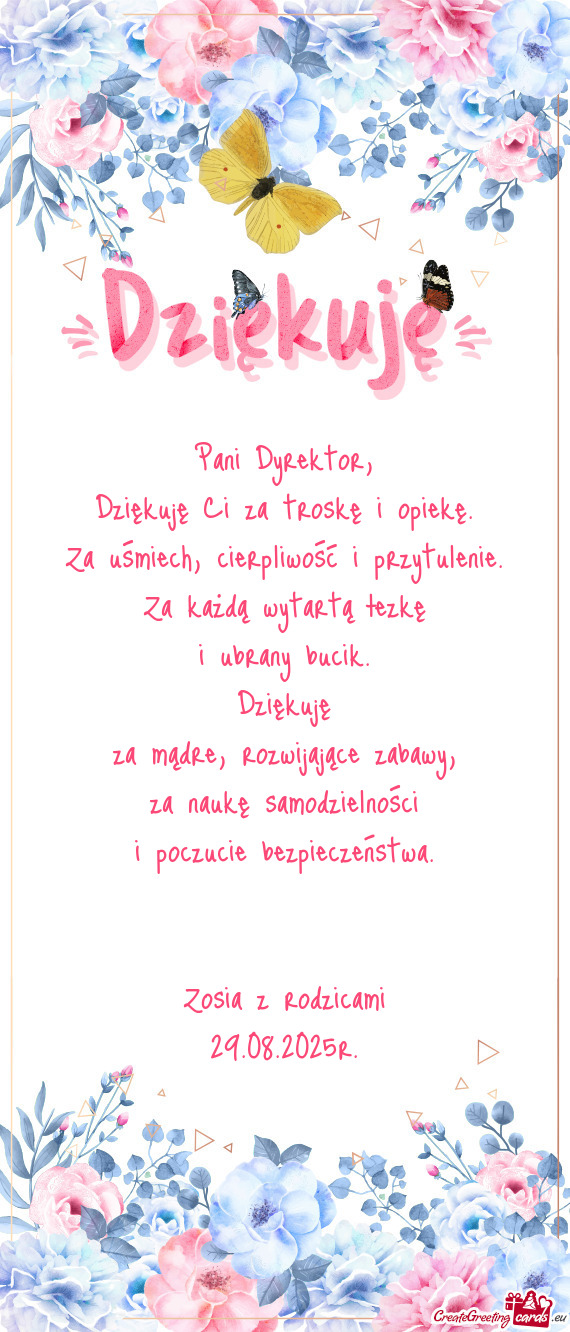 Dziękuję
Pani Dyrektor,
Dziękuję Ci za troskę i opiekę.
Za uśmiech, cierpliwość i przytulenie.
Za każdą wytartą łezkę
i ubrany bucik.
Dziękuję
za mądre, rozwijające zabawy,
za naukę samodzielności
i poczucie bezpieczeństwa.
Zosia z rodzicami
29.08.2025r.
CreateGreeting cards .eu